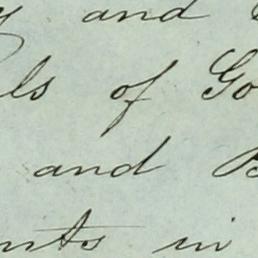 y and
ls of Go
and B
nts in